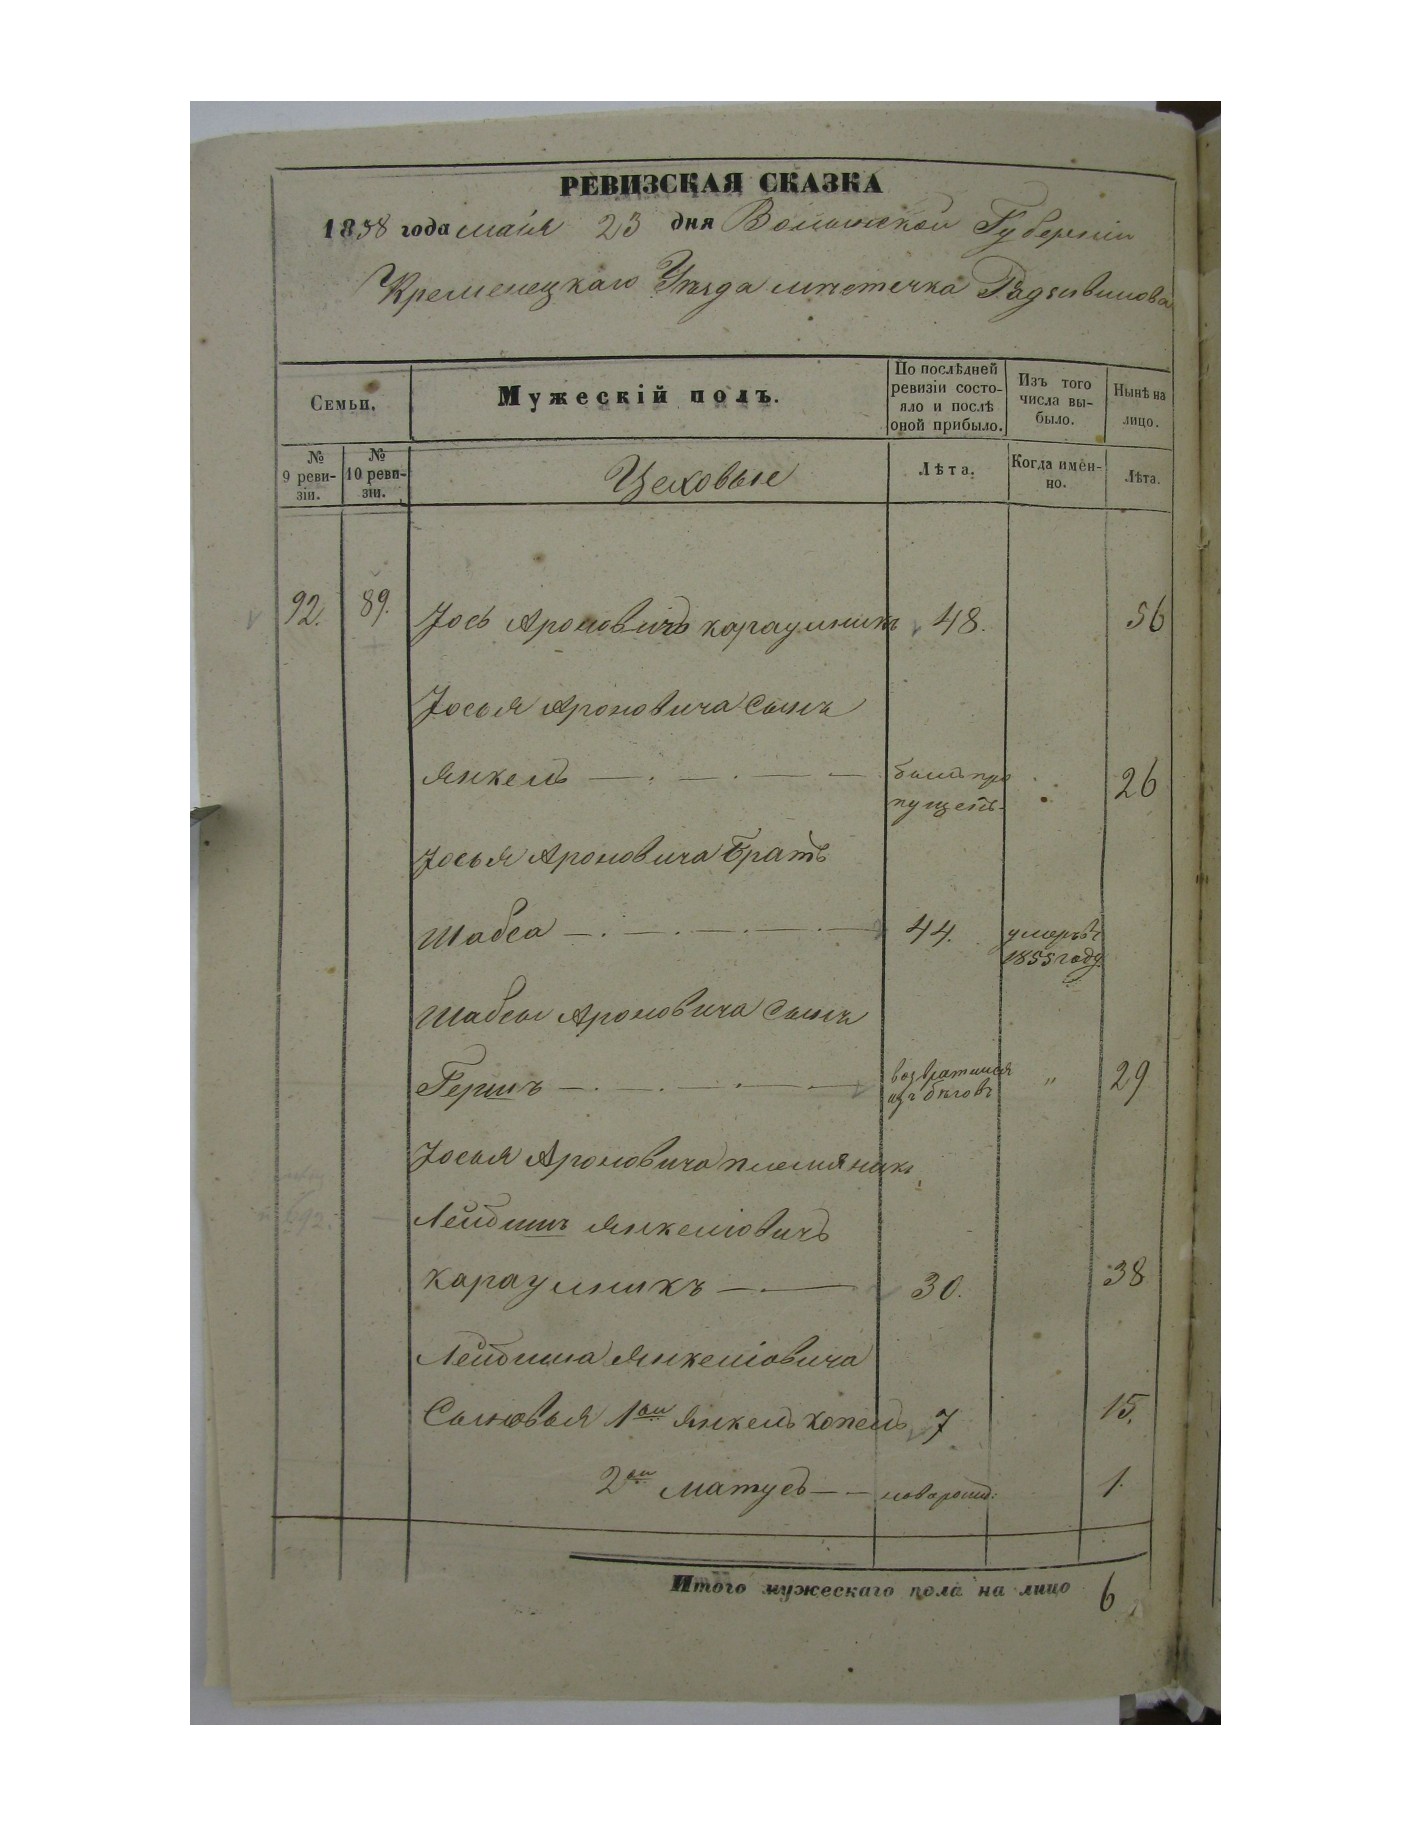 РЕВИЗСКАЯ СКАЗКА
1858 года маія 23 дня Волынской Губерніи
Кременецкаго Уѣзда мѣстечка Радзивилова
Семьи.
Мужескій полъ.
По послѣдней ревизіи состояло и послѣ оной прибыло.
Изъ того числа выбыло.
Нынѣ на лицо.
№ 9 ревизіи.
№ 10 ревизіи.
Цеховые
Лѣта.
Когда именно.
Лѣта.
92. 89. Іось Ароновичъ караулникъ 48. 56
Іосья Ароновича сынъ
Янкель — . — . — — былъ пропущенъ. 26
Іосья Ароновича братъ
Шабса — . — . — . — . — 44. умеръ въ 1855 году.
Шабсы Ароновича сынъ
Гершъ — . — . — . — возвратился изъ бѣговъ „ 29
Іосья Ароновича племяникъ
Лейбишъ Янкеліовичъ
караулникъ — . — 30. 38
Лейбиша Янкеліовича
Сыновья 1ый Янкель Копель 7 15.
2ой Матусъ — — новорожд: 1.
Итого мужескаго пола на лицо 6